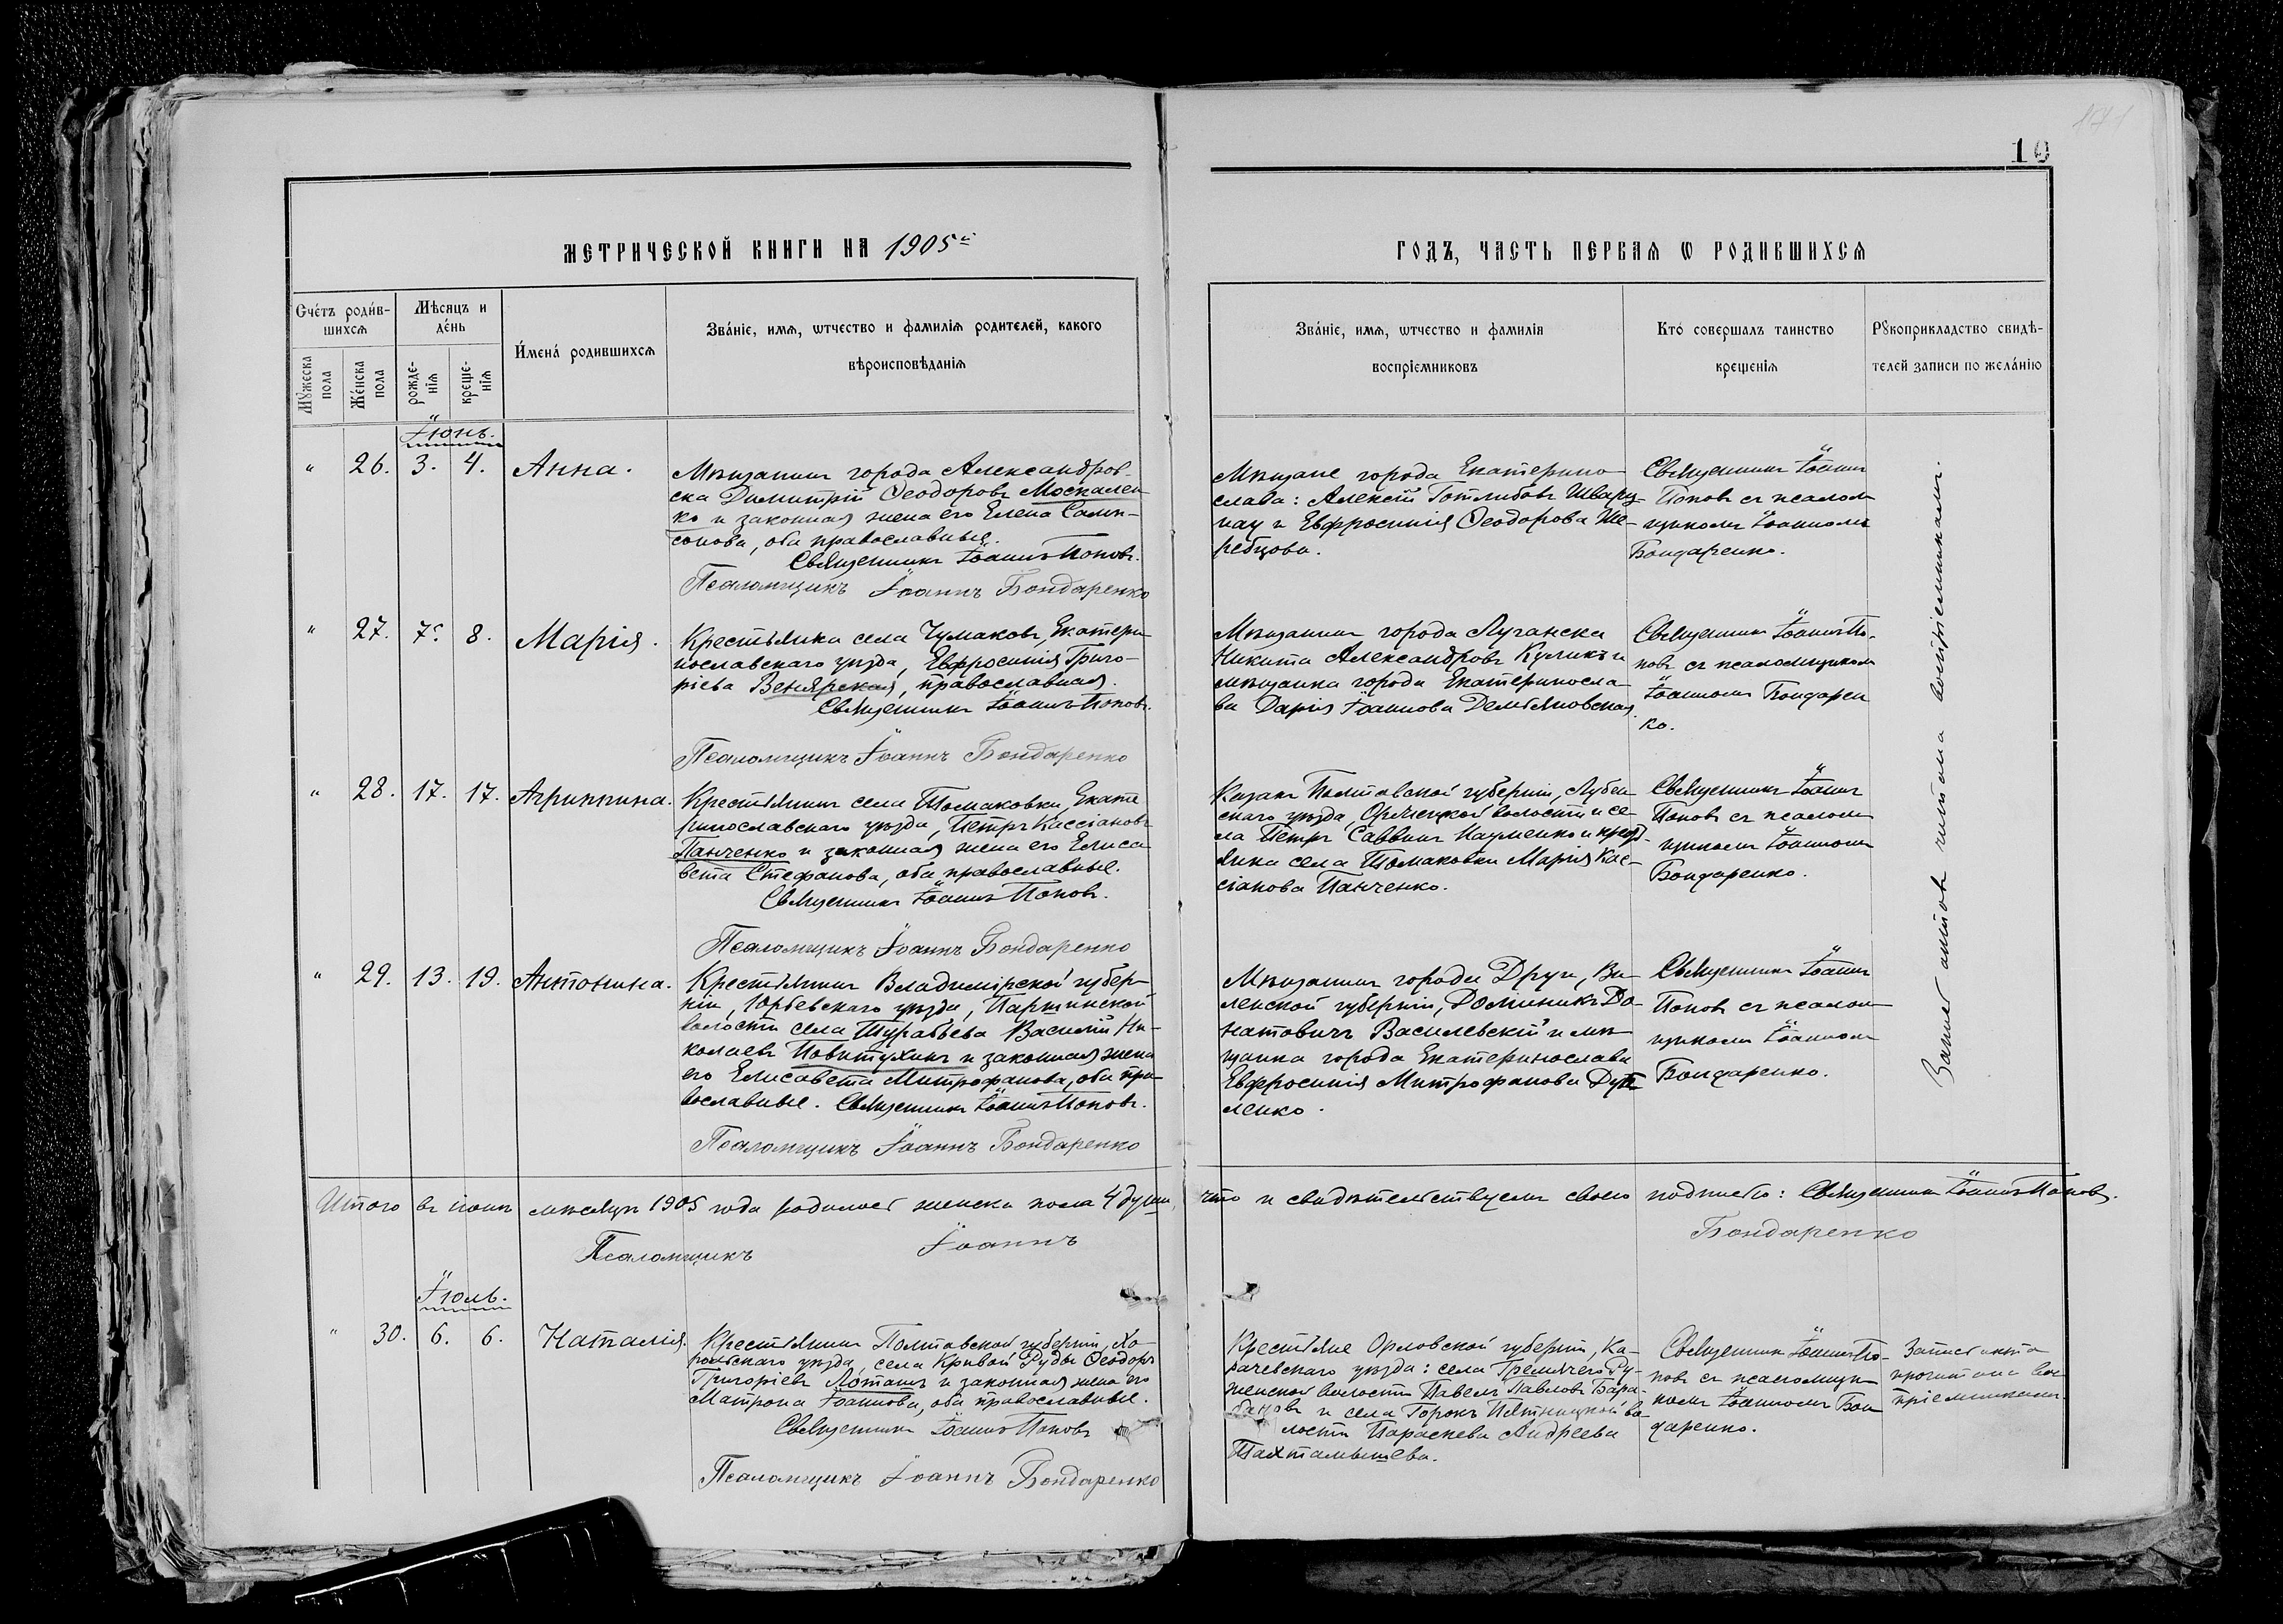 171
10
МЕТРИЧЕСКОЙ КНИГИ НА 1905й
ГОДЪ, ЧАСТЬ ПЕРВАЯ Ѡ РОДИВШИХСЯ
Счéтъ роди́в-
шихсѧ
Мꙋжеска пола
Жéнска пола
Мѣсяцъ и
дéнь
рожде-
нія
креще-
нія
И́мена́ родившихсѧ
Зва́нїе, имѧ, ѡтчество и фамилїѧ родителей, какого
вѣроисповѣданїѧ
Зва́нїе, имѧ, ѡтчество и фамилїѧ
воспрїемниковъ
Кто́ совершалъ таинство
крещенїѧ
Рꙋкоприкладство свидѣ-
телей записи по жела́нїю
Іюнь.
" 26. 3. 4. Анна.
Мѣщанинъ города Александров-
ска Димитрій Ѳеодоровъ Москален-
ко и законная жена его Елена Самп-
сонова, оба православные.
Священникъ Іоаннъ Поповъ.
Псаломщикъ Іоаннъ Бондаренко
Мѣщане города Екатерино-
слава: Алексій Готлибовъ Шварц-
нау и Евфросинія Ѳеодорова Же-
ребцова.
Священникъ Іоаннъ
Поповъ съ псалом-
щикомъ Іоанномъ
Бондаренко.
" 27. 7. 8. Марія.
Крестьянка села Чумаковъ, Екатери-
нославскаго уѣзда, Евфросинія Григо-
ріева Венярская, православная.
Священникъ Іоаннъ Поповъ.
Псаломщикъ Іоаннъ Бондаренко
Мѣщанинъ города Луганска
Никита Александровъ Куликъ и
мѣщанка города Екатериносла-
ва Дарія Іоаннова Демьяновская.
Священникъ Іоаннъ По-
повъ съ псаломщикомъ
Іоанномъ Бондарен
ко.
" 28. 17. 17. Агриппина.
Крестьянинъ села Томаковки, Екате
ринославскаго уѣзда, Петръ Кассіановъ
Панченко и законная жена его Елиса
вета Стефанова, оба православные.
Священникъ Іоаннъ Поповъ.
Псаломщикъ Іоаннъ Бондаренко
Казакъ Полтавской губерніи, Лубен
скаго уѣзда, Оржицкой волости и се-
ла Петръ Саввинъ Науменко и крест-
янка села Томаковки Марія Кас-
сіанова Панченко.
Священникъ Іоаннъ
Поповъ съ псалом
щикомъ Іоанномъ
Бондаренко.
" 29. 13. 19. Антонина.
Крестьянинъ Владимірской губер-
ніи, Юрьевскаго уѣзда, Паршинской
волости села Шурабьева Василій Ни-
колаевъ Повитухинъ и законная жена
его Елисавета Митрофанова, оба пра-
вославные. Священникъ Іоаннъ Поповъ.
Псаломщикъ Іоаннъ Бондаренко
Мѣщанинъ города Друи, Ви-
ленской губерніи, Доминикъ До-
натовичъ Василевскій и мѣ-
щанка города Екатеринослава
Евфросинія Митрофанова
ленко.
Священникъ Іоаннъ
Поповъ съ псалом-
щикомъ Іоанномъ
Бондаренко.
Записъ актовъ читана воспріемниками.
Итого въ іюнѣ мѣсяцѣ 1905 года родилось женска пола 4 души, что и свидѣтельствуемъ своею подписью: Священникъ Іоаннъ Поповъ.
Псаломщикъ Іоаннъ Бондаренко
Іюль.
" 30. 6. 6. Наталія.
Крестьянинъ Полтавской губерніи, Хо-
рольскаго уѣзда, села Кривой Руды Ѳеодоръ
Григоріевъ Лоташъ и законная жена его
Матрона Іоаннова, оба православные.
Священникъ Іоаннъ Поповъ
Псаломщикъ Іоаннъ Бондаренко
Крестьяне Орловской губерніи, Ка-
рачевскаго уѣзда: села Гремячего Су-
женской волости Павелъ Павловъ Бара-
бановъ и села Горокъ Пятницкой во-
лости Параскева Андреева
Тахтамышева.
Священникъ Іоаннъ По-
повъ съ псаломщи-
комъ Іоанномъ Бон
даренко.
Записъ акта
прочитана вос
пріемниками.